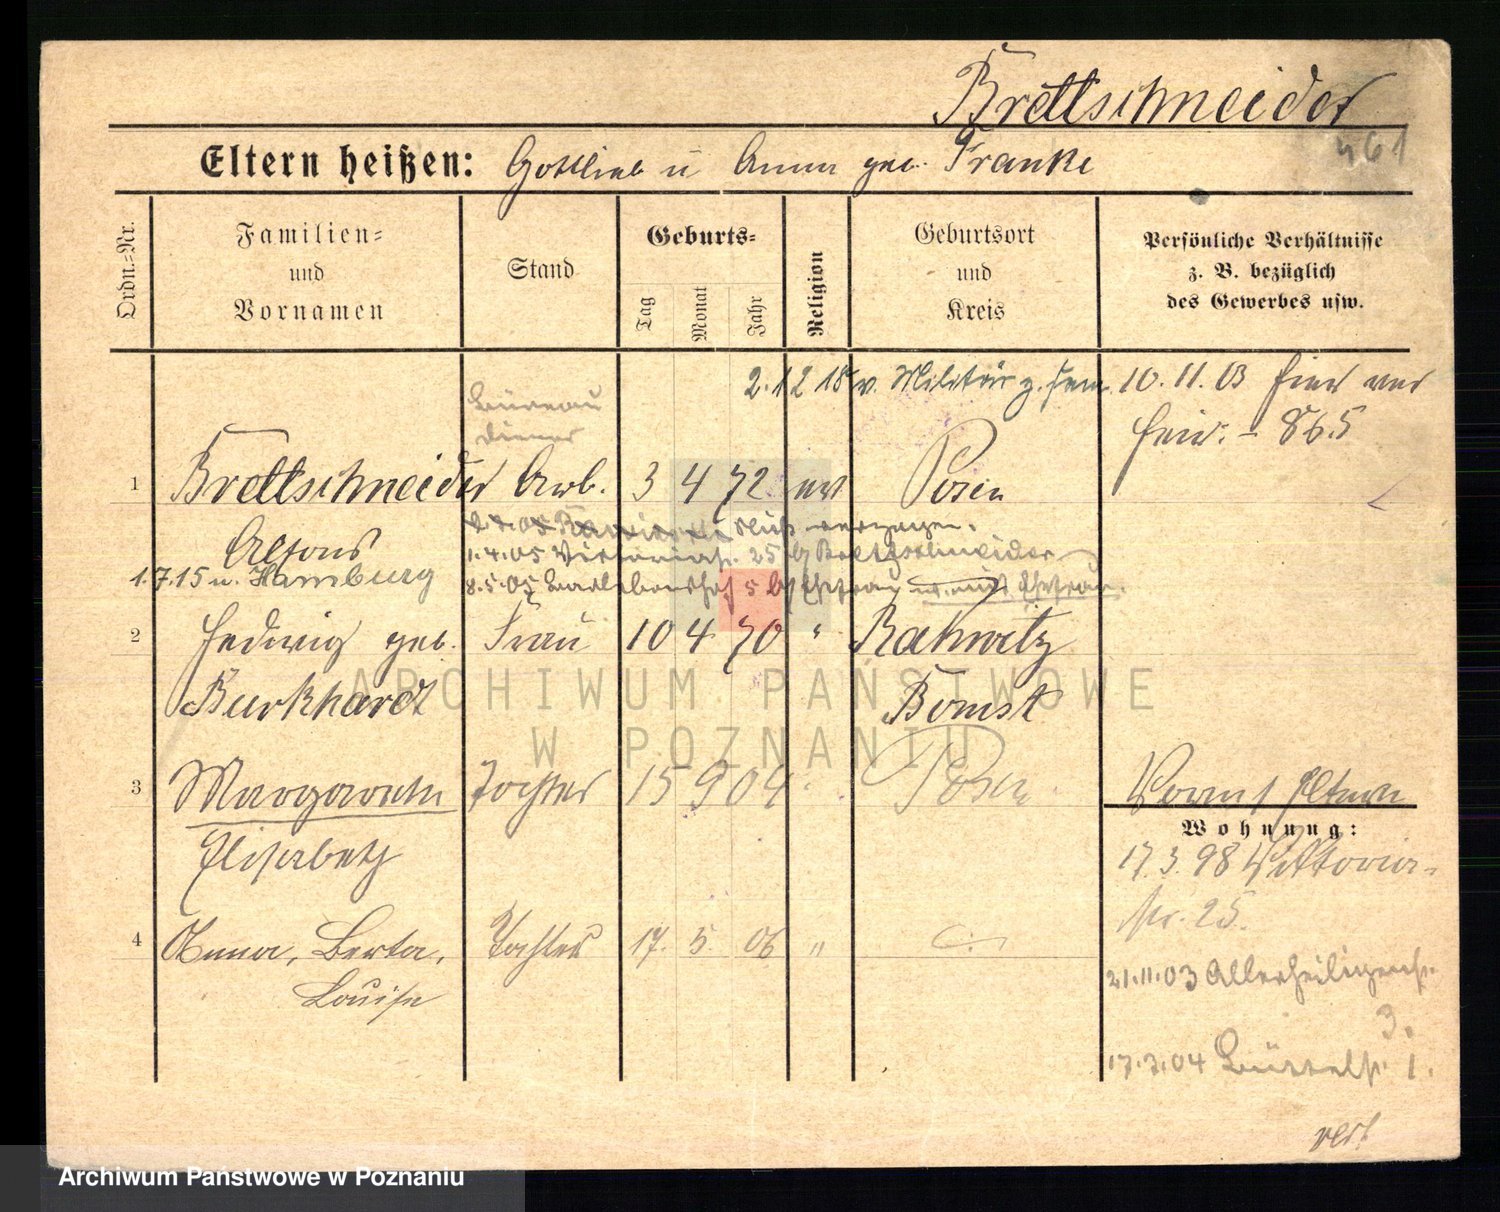 Brettschneider
461
Eltern heißen: Gottlieb u Anna geb. Franke
Ordn.-Nr.
Familien-
und
Vornamen
Stand
Geburts-
Tag
Monat
Jahr
Religion
Geburtsort
und
Kreis
Persönliche Verhältnisse
z. B. bezüglich
des Gewerbes usw.
2.12 18 v. Militär z. fam. 10. 11. 03
- 865
Bureau
diener
1 Brettschneider Arb. 3 4 72 ev Posen
Alfons
verzogen.
1.4.05 Victoriast. 25 b/ Brettschneider
1.7.15 n. Hamburg
8.5.05 5 b/ Ehefrau u. mit Ehefrau.
2 Hedwig geb. Frau 10 4 70 " Rakwitz
Burkhardt Bomst
3 Margarete Tochter 15 9 04 Posen
Elisabeth
Eltern
Wohnung:
17.3.98 Viktoria-
str. 25.
4 Anna, Berta, Tochter 17. 5. 06 "
Louise
21.11.03 Allerheiligenst.
3.
17.3.04 1.
verh
ARCHIWUM PAŃSTWOWE
W POZNANIU
Archiwum Państwowe w Poznaniu